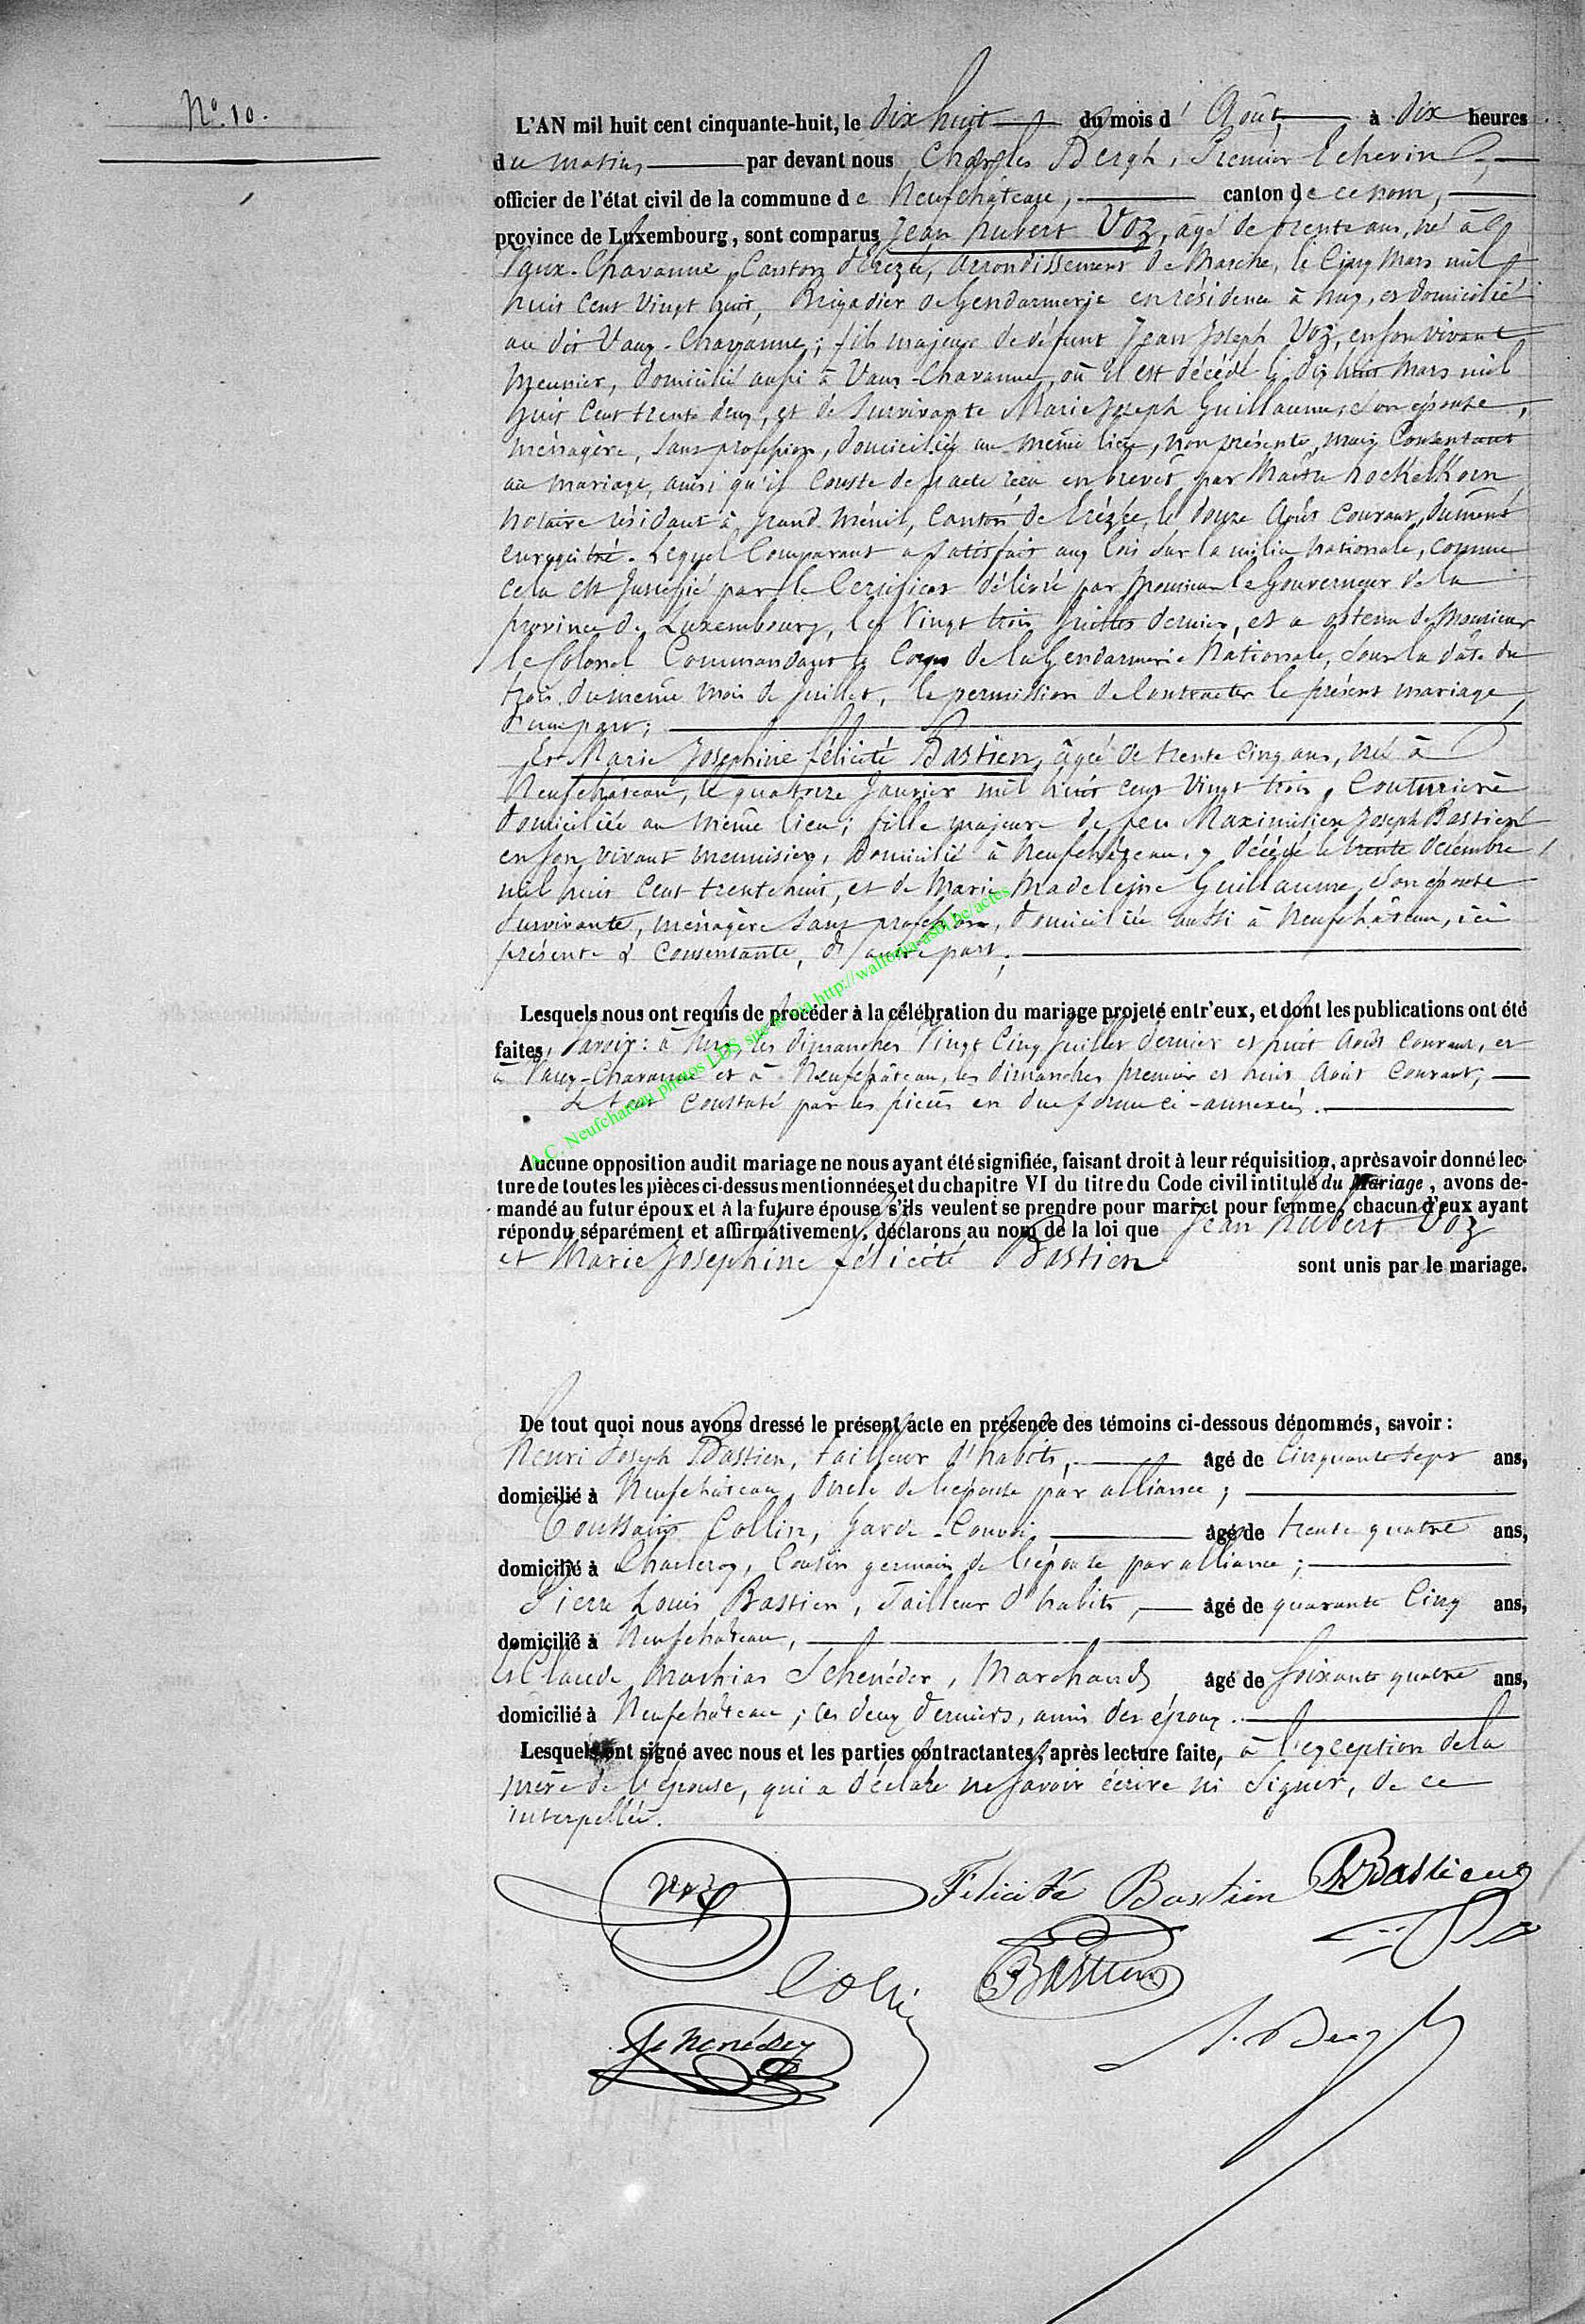 N° 10.
L'AN mil huit cent cinquante-huit, le dix huit du mois d' Août, à dix heures
du matin, par devant nous Charles Bergh, Premier Echevin,
officier de l'état civil de la commune de Neufchâteau, canton de ce nom,
province de Luxembourg, sont comparus Jean hubert Voz, âgé de trente ans, né à
Vaux-Chavanne, Canton d'Erezée, arrondissement de Marche, le Cinq Mars mil
huit cent vingt huit, Brigadier de Gendarmerie en résidence à huy, et domicilié
au dit Vaux-Chavanne; fils majeur de défunt Jean Joseph Voz, en son vivant
meunier, domicilié aussi à Vaux-Chavanne, où il est décédé le dix huit Mars mil
huit cent trente deux, et de survivante Marie Joseph Guillaume, son épouse,
ménagère, sans profession, domiciliée au même lieu, non présente, mais Consentant
au mariage, ainsi qu'il Conste de l'acte reçu en brevet par Maître hockelkorn
notaire résidant à grand ménil, Canton de Erézée, le douze Août courant, dûment
enregistré. Lequel Comparant a satisfait aux lois sur la milice nationale, comme
cela est Justifié par le Certificat délivré par Monsieur le Gouverneur de la
province de Luxembourg, le vingt trois Juillet dernier, et a obtenu de Monsieur
le Colonel Commandant le Corps de la Gendarmerie Nationale, sous la date du
trois du même mois de Juillet, la permission de Contracter le présent mariage,
d'une part;
Et Marie Josephine félicité Bastien, âgée de trente cinq ans, née à
Neufchâteau, le quatorze Janvier mil huit cent vingt trois, Couturière
domiciliée au même lieu; fille majeure de feu Maximilien Joseph Bastien
en son vivant menuisier, domicilié à Neufchâteau, y décédé le trente décembre
mil huit cent trente huit, et de Marie Madeleine Guillaume, son épouse
survivante, ménagère sans profession, domiciliée aussi à Neufchâteau, ici
présente & consentante, d'autre part;
Lesquels nous ont requis de procéder à la célébration du mariage projeté entr'eux, et dont les publications ont été
faites, Savoir: à huy, les dimanches vingt cinq Juillet dernier et huit Août Courant, et
à Vaux-Chavanne et à Neufchâteau, les dimanches premier et huit Août Courant,
le tout constaté par les pièces en due forme ci-annexées.
A.C. Neufchateau photos LDS site et via http://wallonia-asbl.be/actes
Aucune opposition audit mariage ne nous ayant été signifiée, faisant droit à leur réquisition, après avoir donné lec-
ture de toutes les pièces ci-dessus mentionnées et du chapitre VI du titre du Code civil intitulé du Mariage, avons de-
mandé au futur époux et à la future épouse s'ils veulent se prendre pour mari et pour femme, chacun d'eux ayant
répondu séparément et affirmativement, déclarons au nom de la loi que Jean hubert Voz
et Marie Josephine félicité Bastien sont unis par le mariage.
De tout quoi nous avons dressé le présent acte en présence des témoins ci-dessous dénommés, savoir:
Henri Joseph Bastien, tailleur d'habits, âgé de Cinquante Sept ans,
domicilié à Neufchâteau, Oncle de l'épouse par alliance;
Toussaint Collin, Garde-Convoi, âgé de trente quatre ans,
domicilié à Charleroy, Cousin germain de l'épouse par alliance;
Pierre Louis Bastien, Tailleur d'habits, âgé de quarante Cinq ans,
domicilié à Neufchâteau,
Et Claude Mathias Schenéder, Marchand, âgé de soixante quatre ans,
domicilié à Neufchâteau; ces deux derniers, amis des époux.
Lesquels ont signé avec nous et les parties contractantes, après lecture faite, à l'exception de la
mère de l'épouse, qui a déclaré ne savoir écrire ni signer, de ce
interpellée.
Voz Félicité Bastien Bastien
Collin Bastien
Schenéder Bergh